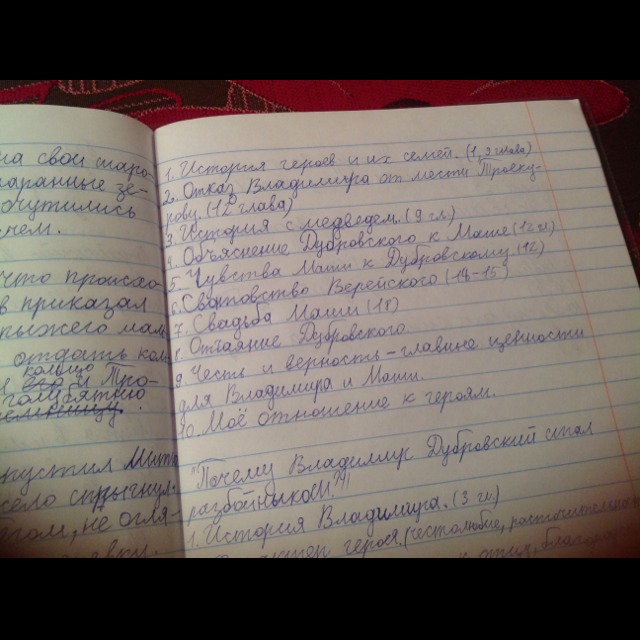 на свои
чаранные зе-
очутились
что происхо
в приказал
отдать
кольцо
я его и Тро-
1. История героев и их семей. (1, 3 глава)
2. Отказ Владимира от мести Троеку-
рову. (12 глава)
3. История с медведем. (9 гл.)
4. Объяснение Дубровского к Маше (12 гл)
5. Чувства Маши к Дубровскому (12)
6. Сватовство Верейского (14-15)
7. Свадьба Маши (18)
8. Отчаяние Дубровского
9. Честь и верность - главные ценности
для Владимира и Маши.
10. Моё отношение к героям.
пустил Митю
спрыгнул
бегом, не огля-
"Почему Владимир Дубровский стал
разбойником?"
1. История Владимира. (3 гл)
героя (честолюбие, расточительность